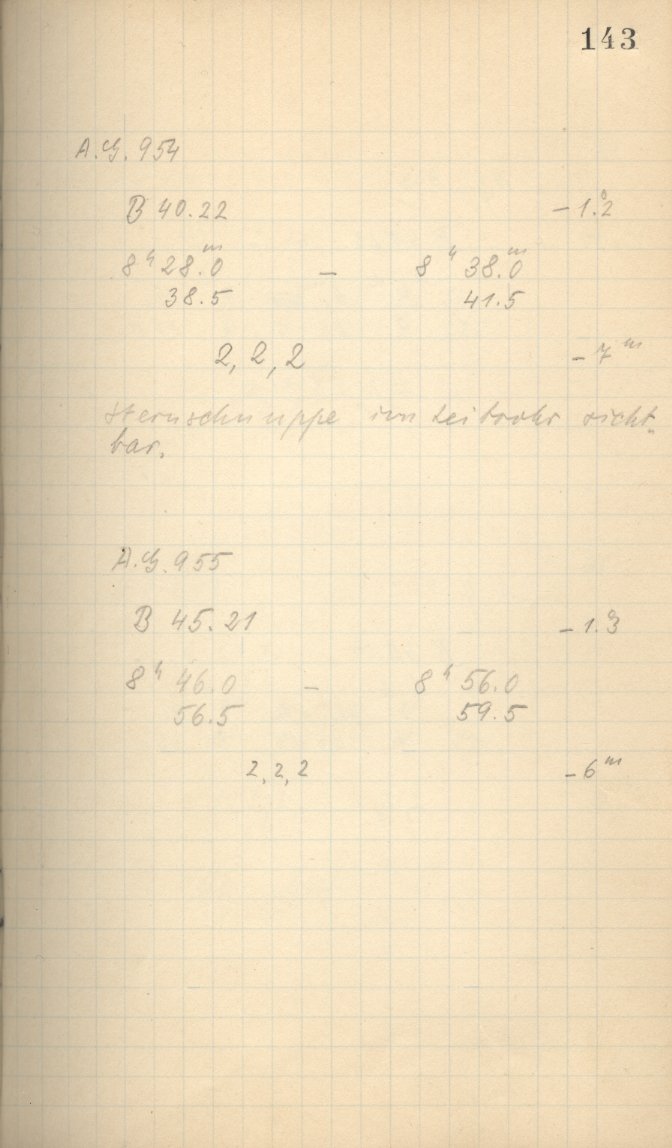 143
A.G. 954
B 40.22 -1.°2
8ʰ 28.ᵐ0 - 8ʰ 38.ᵐ0
38.5 41.5
2, 2, 2 -7ᵐ
Sternschnuppe im Leitrohr sicht„
bar.
A.G. 955
B 45.21 -1.°3
8ʰ 46.0 - 8ʰ 56.0
56.5 59.5
2, 2, 2 -6ᵐ